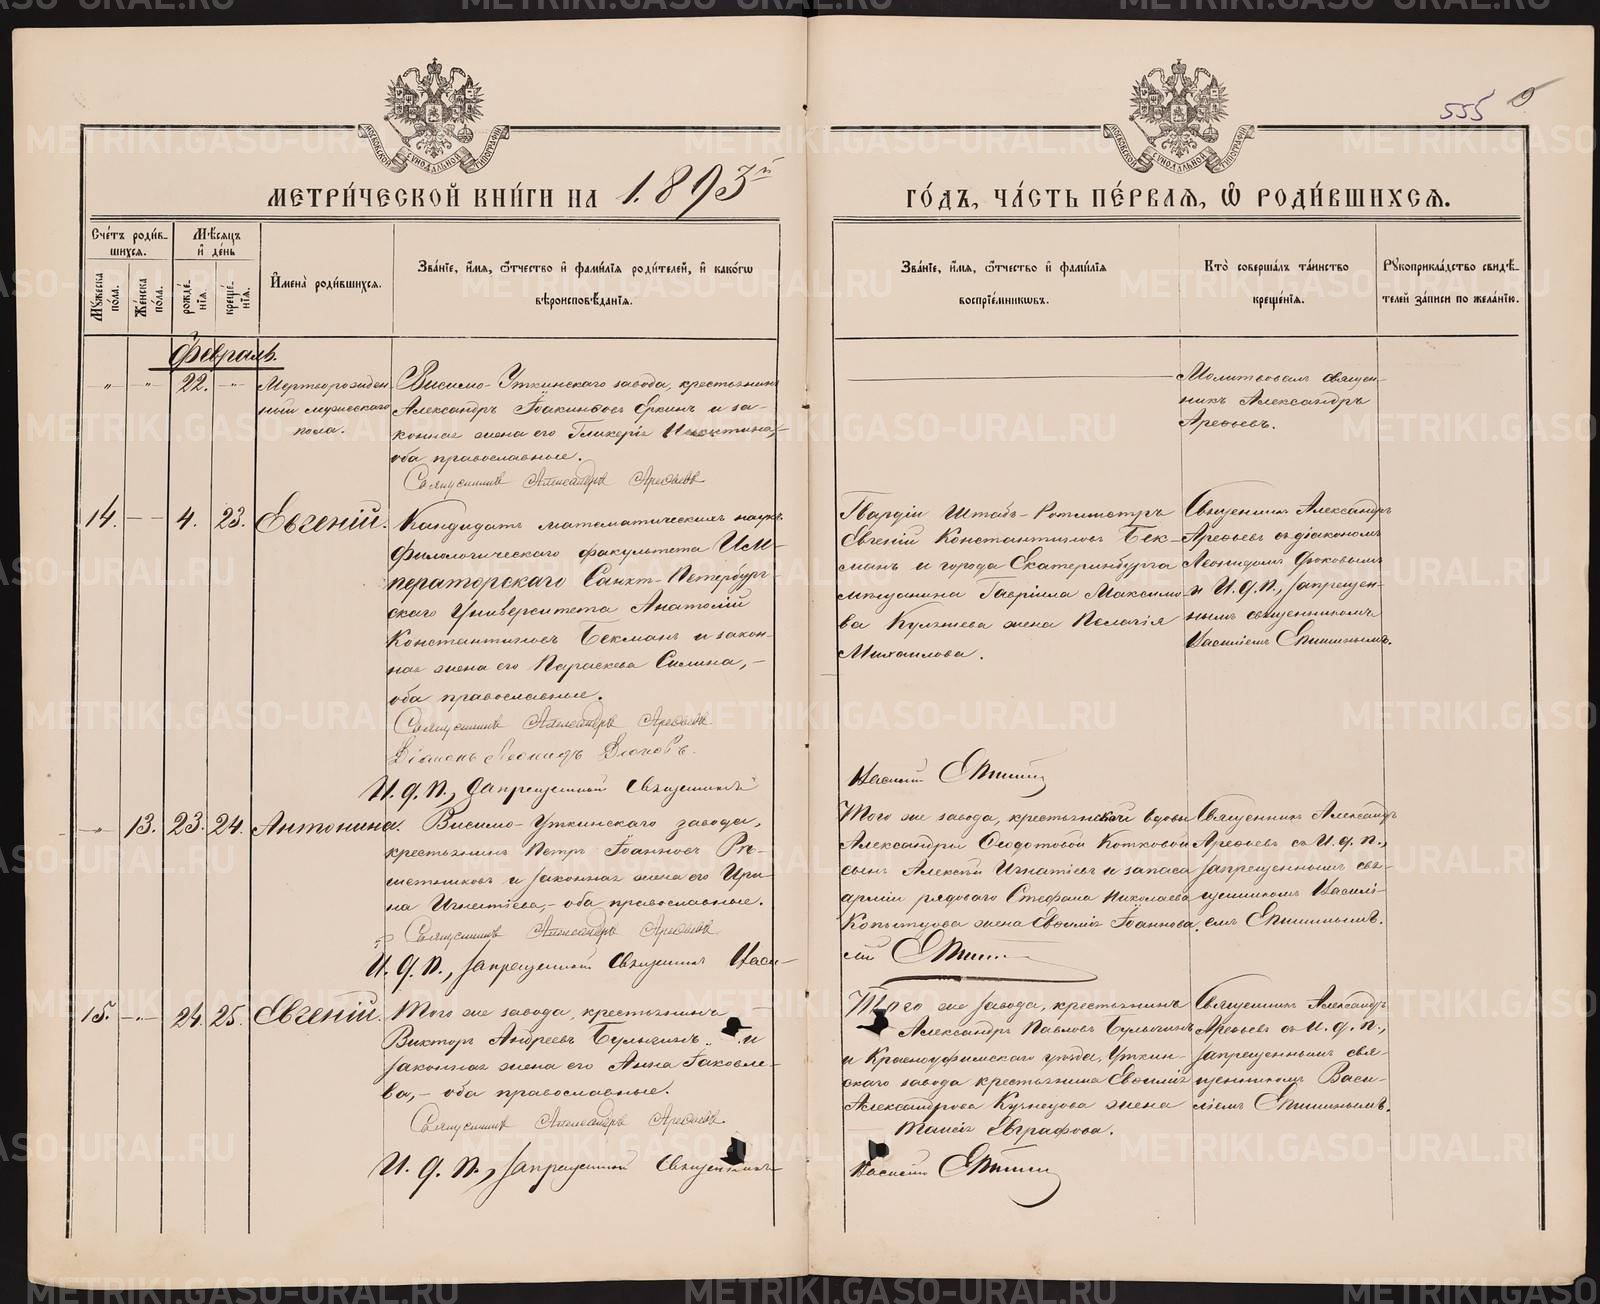 555
МЕТРИ́ЧЕСКОЙ КНИ́ГИ НА 1893й
ГО́ДЪ, ЧА́СТЬ ПЕ́РВАЯ, Ѡ҆ РОДИ́ВШИХСЯ.
Сче́тъ роди́в-
шихся.
Мѣ́сяцъ
и҆ де́нь
Му́жеска
по́ла.
Же́нска
по́ла.
рожде́-
нія.
креще́-
нія.
И҆мена̀ роди́вшихся.
Зва́ніе, и҆́мя, ѻ҆́тчество и҆ фами́лія роди́телей, и҆ како́гѡ
вѣроисповѣ́данія.
Зва́ніе, и҆́мя, ѻ҆́тчество и҆ фами́лія
воспріе́мникѡвъ.
Кто̀ соверша́лъ та́инство
креще́нія.
Рукоприкла́дство свидѣ́-
телей за́писи по жела́нію.
Февраль.
22.
Мертворожден-
ный мужескаго
пола.
Висимо-Уткинскаго завода, крестьянинъ
Александръ Іоакинфовъ Еркинъ и за-
конная жена его Гликерія Никитина,-
оба православные.
Священникъ Александръ Арефьевъ
Молитвовалъ священ-
никъ Александръ
Арефьевъ.
14. 4. 23. Евгеній.
Кандидатъ математическихъ наукъ
филологическаго факультета Им-
ператорскаго Санкт-Петербург-
скаго Университета Анатолій
Константиновъ Бекманъ и закон-
ная жена его Параскева Силина,-
оба православные.
Священникъ Александръ Арефьевъ
Діаконъ Леонидъ
И. д. п., запрещенный Священникъ
Гвардіи Штабъ-Ротмистръ
Евгеній Константиновъ Бек-
манъ и города Екатеринбурга
мѣщанина Гавріила Максимо-
ва Кулжева жена Пелагія
Михаилова.
Василій
Священникъ Александръ
Арефьевъ съ діакономъ
Леонидомъ
и И. д. п., запрещен-
нымъ священникомъ
Василіемъ Епишинымъ.
13. 23. 24. Антонина.
Висимо-Уткинскаго завода,
крестьянинъ Петръ Іоанновъ Рѣ-
шетниковъ и законная жена его Ири-
на Игнатіева,- оба православные.
Священникъ Александръ Арефьевъ
И. д. п., запрещенный Священникъ Васи-
Того же завода, крестьянской вдовы
Александры Ѳеодотовой Котковой
сынъ Алексѣй Игнатіевъ и запаса
арміи рядоваго Стефана Николаева
Копытцова жена Евфимія Іоаннова.
лій
Священникъ Александръ
Арефьевъ съ И. д. п.,
запрещеннымъ свя-
щенникомъ Василі-
емъ Епишинымъ.
15. 24. 25. Евгеній.
Того же завода, крестьянинъ
Викторъ Андреевъ Булыгинъ и
законная жена его Анна Іаковле-
ва,- оба православные.
Священникъ Александръ Арефьевъ
И. д. п., запрещенный Священникъ
Того же завода, крестьянинъ
Александръ Павловъ Булыгинъ
и Красноуфимскаго уѣзда, Уткин-
скаго завода крестьянина Евфимія
Александрова Кузнецова жена
Таисія Евграфова.
Василій
Священникъ Александръ
Арефьевъ съ И. д. п.,
запрещеннымъ свя-
щенникомъ Васи-
ліемъ Епишинымъ.
METRIKI.GASO-URAL.RU